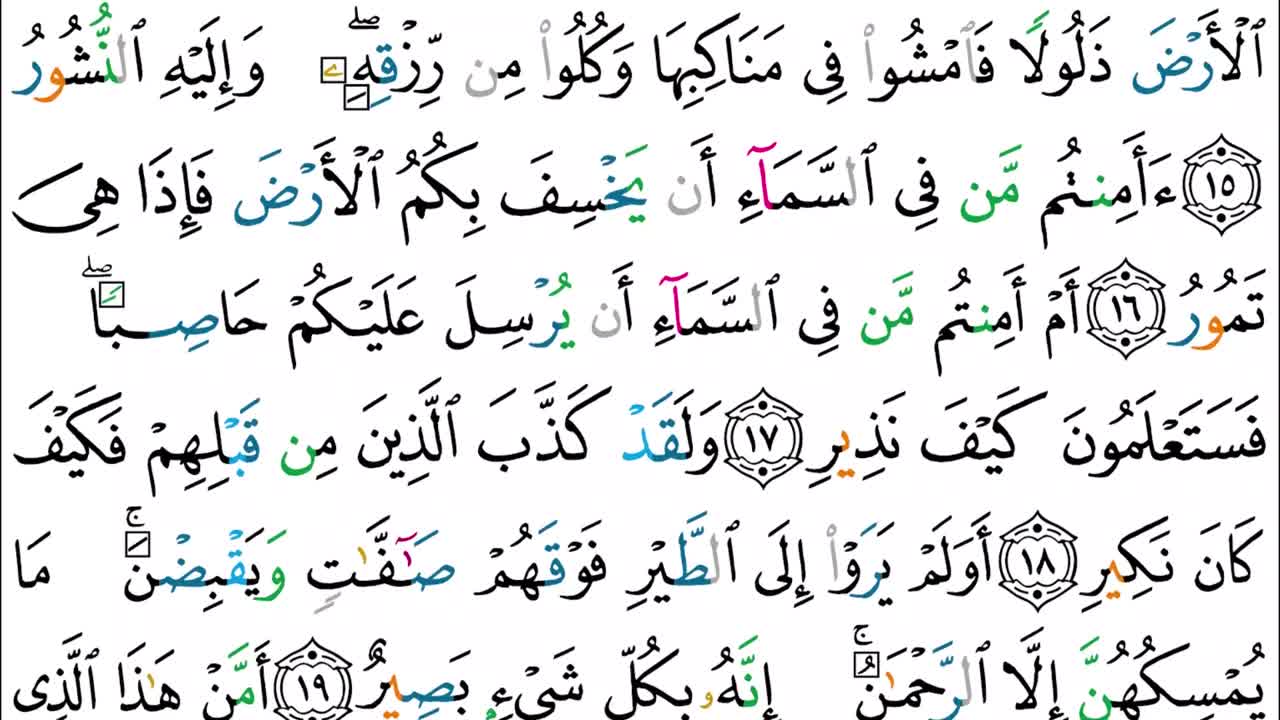 ٱلْأَرْضَ ذَلُولًا فَٱمْشُوا۟ فِى مَنَاكِبِهَا وَكُلُوا۟ مِن رِّزْقِهِۦ ۖ وَإِلَيْهِ ٱلنُّشُورُ
١٥ ءَأَمِنتُم مَّن فِى ٱلسَّمَآءِ أَن يَخْسِفَ بِكُمُ ٱلْأَرْضَ فَإِذَا هِىَ
تَمُورُ ١٦ أَمْ أَمِنتُم مَّن فِى ٱلسَّمَآءِ أَن يُرْسِلَ عَلَيْكُمْ حَاصِبًا ۖ
فَسَتَعْلَمُونَ كَيْفَ نَذِيرِ ١٧ وَلَقَدْ كَذَّبَ ٱلَّذِينَ مِن قَبْلِهِمْ فَكَيْفَ
كَانَ نَكِيرِ ١٨ أَوَلَمْ يَرَوْا۟ إِلَى ٱلطَّيْرِ فَوْقَهُمْ صَٰٓفَّٰتٍ وَيَقْبِضْنَ ۚ مَا
يُمْسِكُهُنَّ إِلَّا ٱلرَّحْمَٰنُ ۚ إِنَّهُۥ بِكُلِّ شَىْءٍۭ بَصِيرٌ ١٩ أَمَّنْ هَٰذَا ٱلَّذِى